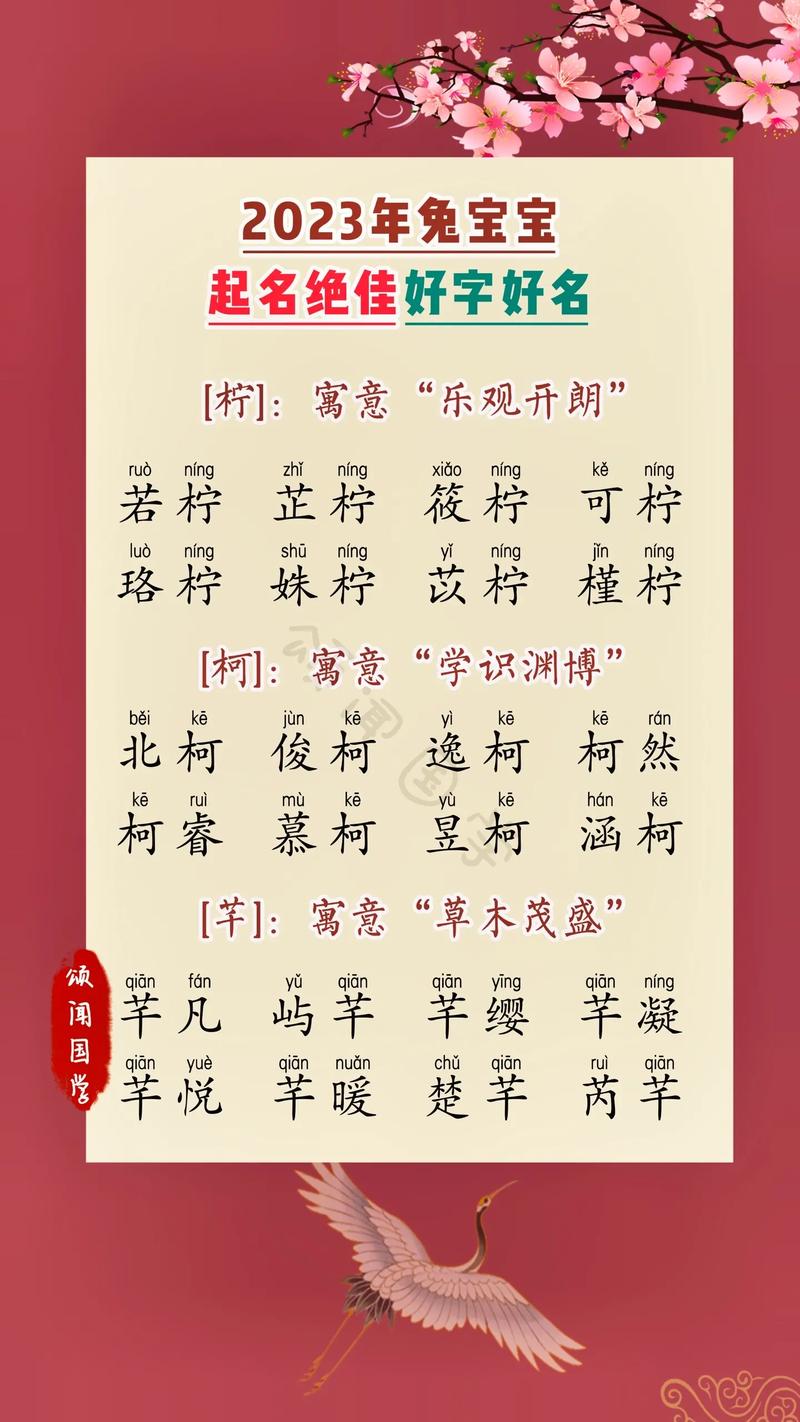 2023年兔宝宝
起名绝佳好字好名
[柠]：寓意“乐观开朗”
ruò níng zhǐ níng xiǎo níng kě níng
若柠 芷柠 筱柠 可柠
luò níng shū níng yǐ níng jǐn níng
珞柠 姝柠 苡柠 槿柠
[柯]：寓意“学识渊博”
běi kē jùn kē yì kē kē rán
北柯 俊柯 逸柯 柯然
kē ruì mù kē yù kē hán kē
柯睿 慕柯 昱柯 涵柯
[芊]：寓意“草木茂盛”
qiān fán yǔ qiān qiān yīng qiān níng
芊凡 屿芊 芊缨 芊凝
qiān yuè qiān nuǎn chǔ qiān ruì qiān
芊悦 芊暖 楚芊 芮芊
颂闻国学
颂闻国学